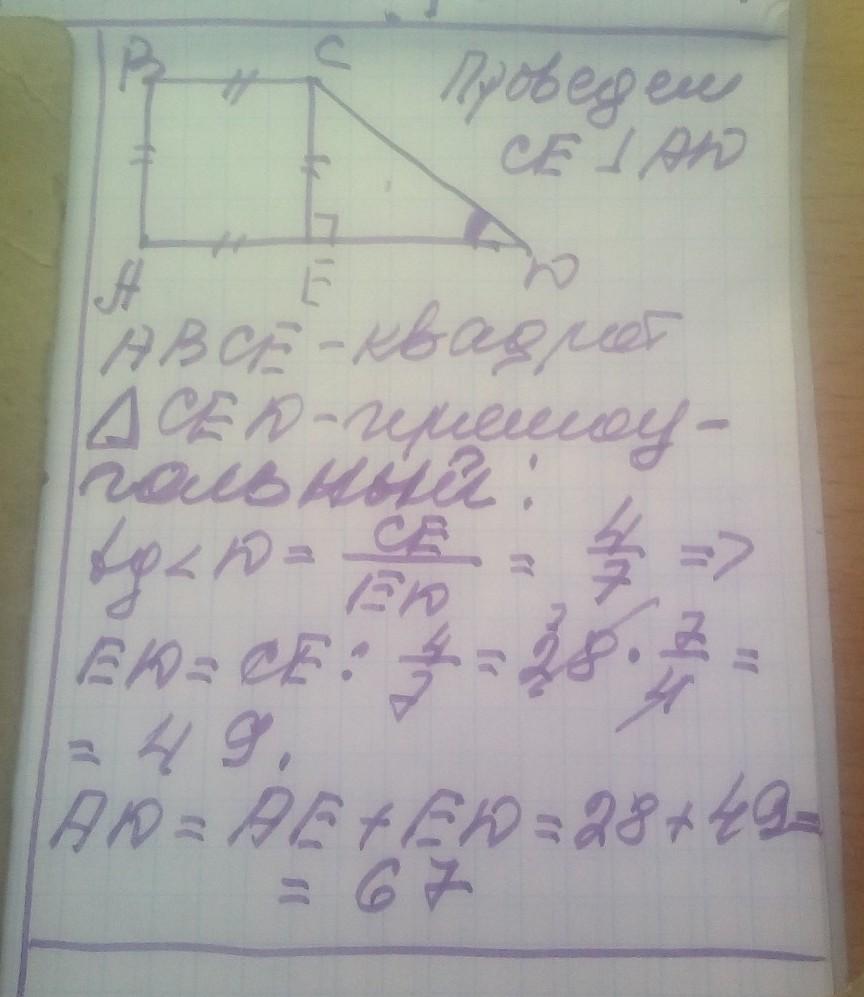 B C
Проведем
CE ⊥ AD
A E D
ABCE - квадрат
△CED - прямоу-
гольный:
tg<D = CE/ED = 4/7 =>
ED = CE : 4/7 = 28 · 7/4 =
= 49.
AD = AE + ED = 28 + 49 =
= 67